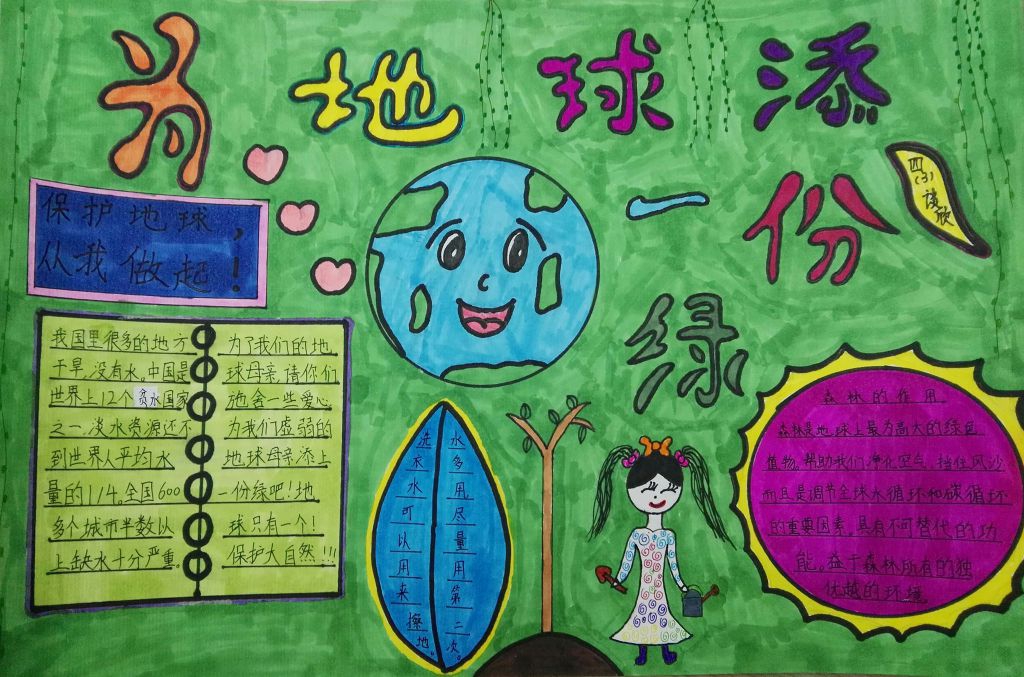 为地球添
一份
绿
四(3)
保护地球,
从我做起!
我国里很多的地方
干旱,没有水,中国是
世界上12个贫水国家
之一,淡水资源还不
到世界人平均水
量的1/4。全国600
多个城市半数以
上缺水十分严重。
为了我们的地
球母亲,请你们
施舍一些爱心
为我们虚弱的
地球母亲添上
一份绿吧!地
球只有一个!
保护大自然!!!
洗衣水可以用来擦地。
水多用尽量用第二次。
森林的作用
森林是地球上最为高大的绿色
植物。帮助我们净化空气,挡住风沙
而且是调节全球水循环和碳循环
的重要因素,具有不可替代的功
能。益于森林所有的独
优越的环境